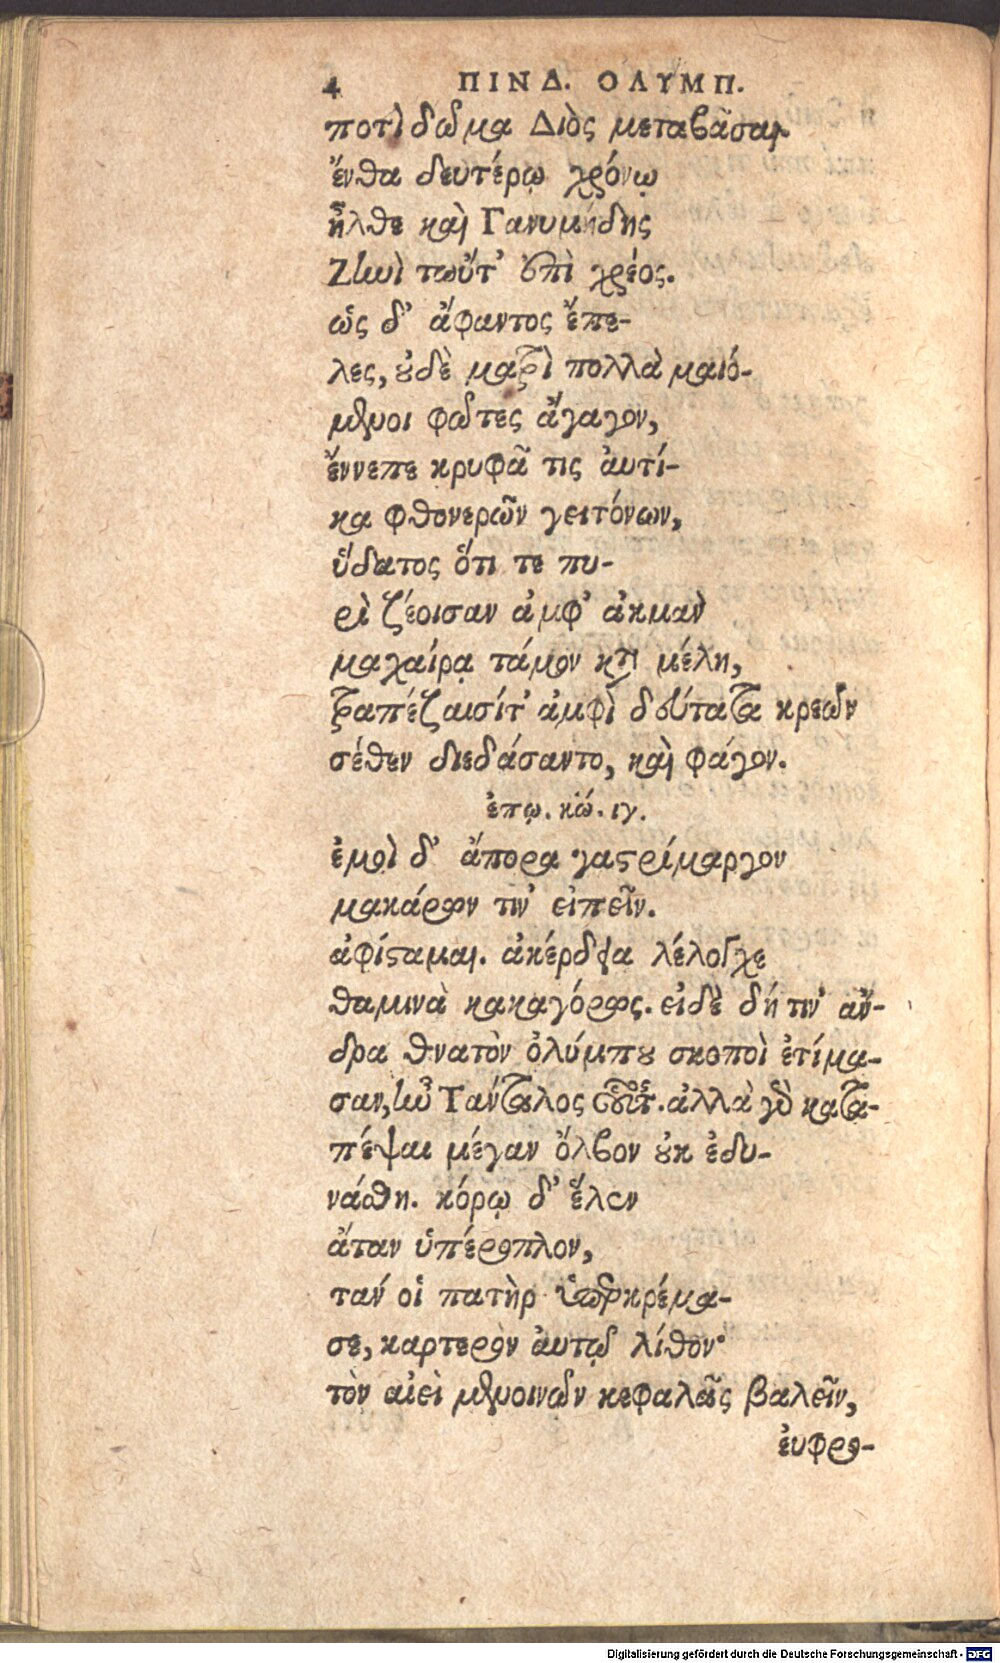 4 ΠΙΝΔ. ΟΛΥΜΠ.
ποτὶ δῶμα Διὸς μεταβᾶσαι
ἔνθα δευτέρῳ χρόνῳ
ἦλθε καὶ Γανυμήδης
Ζηνὶ τωὔτ' ἐπὶ χρέος.
ὡς δ' ἄφαντος ἔπε-
λες, οὐδὲ ματρὶ πολλὰ μαιό-
μενοι φῶτες ἄγαγον,
ἔννεπε κρυφᾶ τις ἀυτί-
κα φθονερῶν γειτόνων,
ὕδατος ὅτι τε πυ-
ρὶ ζέοισαν ἀμφ' ἀκμὰν
μαχαίρᾳ τάμον κατὰ μέλη,
τραπέζαισίτ' ἀμφὶ δεύτατα κρεῶν
σέθεν διεδάσαντο, καὶ φάγον.
ἐπῳ. κώ. ιγ.
ἐμοὶ δ' ἄπορα γαστρίμαργον
μακάρων τιν' εἰπεῖν.
ἀφίσταμαι. ἀκέρδεια λέλογχε
θαμινὰ κακαγόρως. εἰδὲ δή τιν' ἄν-
δρα θνατὸν ὀλύμπου σκοποὶ ἐτίμα-
σαν, ἦν Τάνταλος οὗτος. ἀλλὰ γὰρ κατα-
πέψαι μέγαν ὄλβον οὐκ ἐδυ-
νάσθη. κόρῳ δ' ἕλεν
ἄταν ὑπέροπλον,
τάν οἱ πατὴρ ὑπερκρέμα-
σε, καρτερὸν ἀυτῷ λίθον·
τὸν αἰεὶ μενοινῶν κεφαλᾶς βαλεῖν,
ἐυφρο-
Digitalisierung gefördert durch die Deutsche Forschungsgemeinschaft - DFG